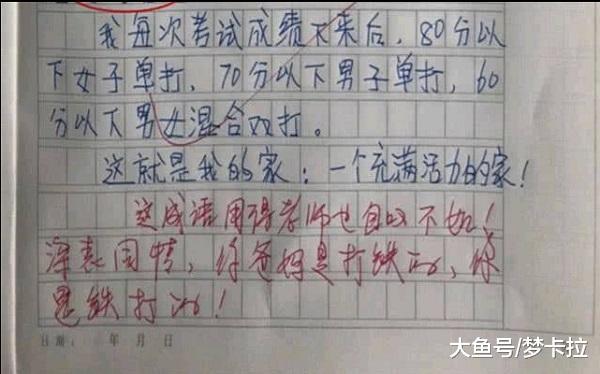 我每次考试成绩下来后，80分以
下女子单打，70分以下男子单打，60
分以下男女混合双打。
这就是我的家：一个充满活力的家！
这成语用得老师也自叹不如！
深表同情，你爸妈是打铁的，你
是铁打的！
日期： 年 月 日
大鱼号/梦卡拉